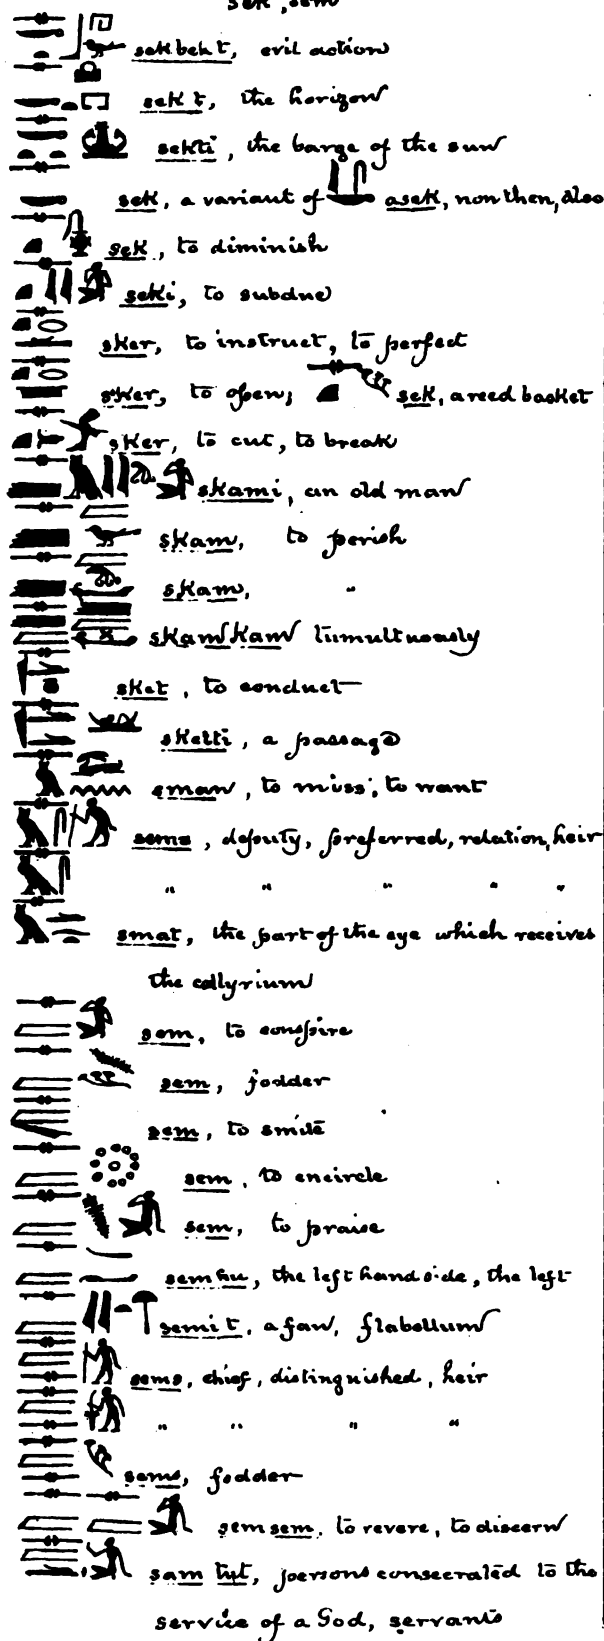 sek, sem
sekbeht, evil action
sekt, the horizon
sekti, the barge of the sun
sek, a variant of asek, non then, also
sek, to diminish
seki, to subdue
sker, to instruct, to perfect
sker, to open; sek, a reed basket
sker, to cut, to break
skami, an old man
skam, to perish
skam, "
skamkam tumultuously
sket, to conduct
sketti, a passage
eman, to miss, to want
sems, deputy, preferred, relation, heir
" " " " "
smat, the part of the eye which receives
the collyrium
sem, to conspire
sem, fodder
sem, to smite
sem, to encircle
sem, to praise
semhu, the left hand side, the left
semit, a fan, flabellum
sems, chief, distinguished, heir
" " " "
sems, fodder
semsem, to revere, to discern
sam tut, persons consecrated to the
service of a God, servants